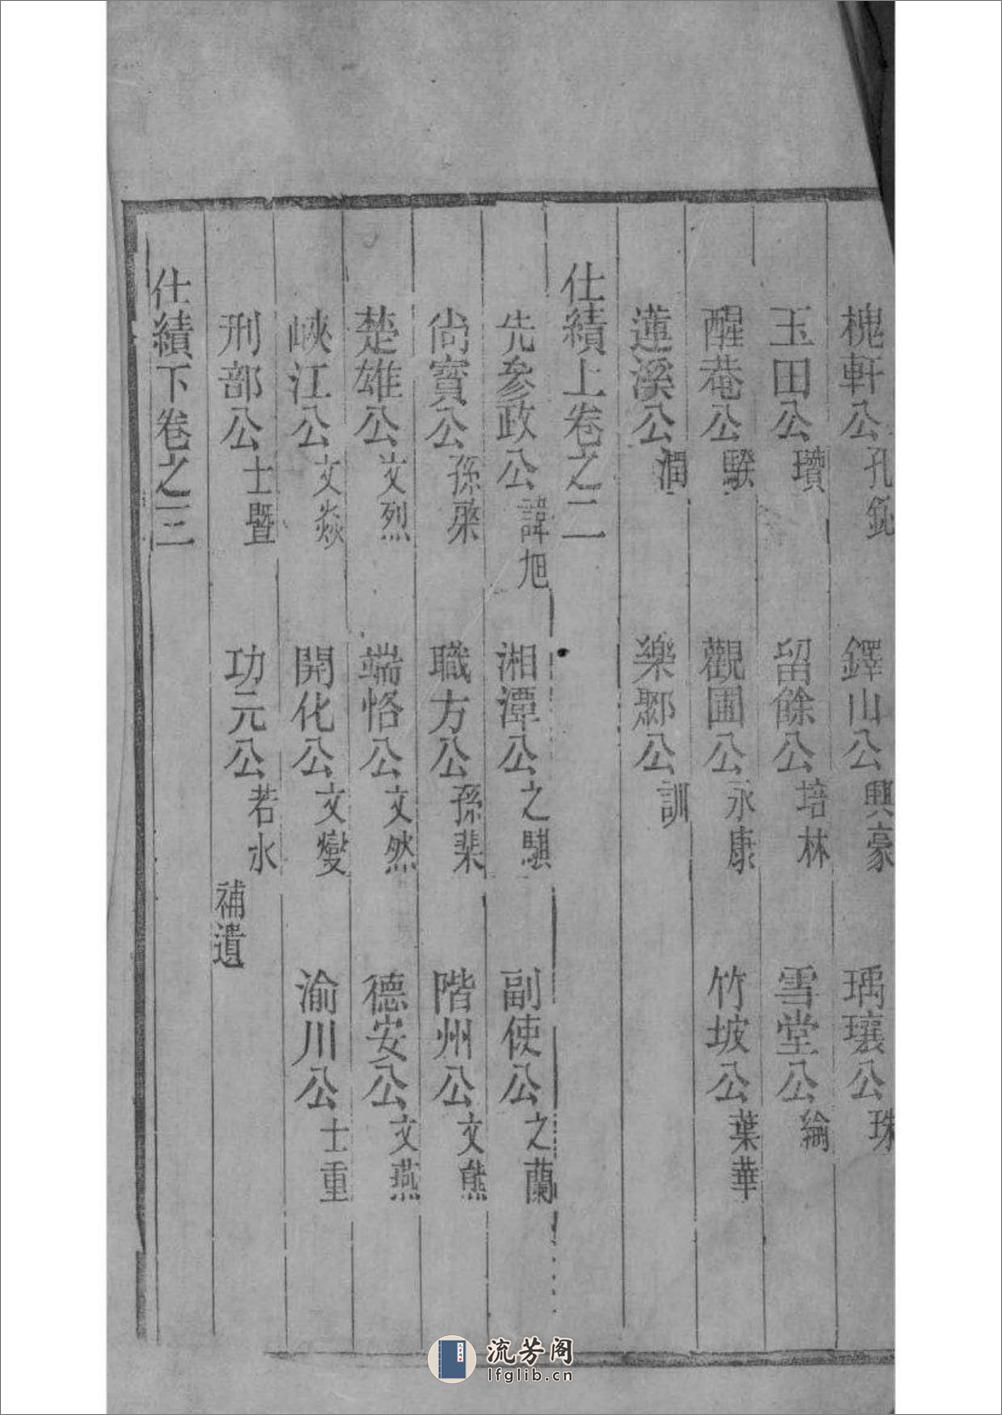 槐軒公 孔 鐸山公 興豪 瑀瓖公 珠
玉田公 瓚 留餘公 培林 雪堂公 綸
醒菴公 騤 觀圃公 永康 竹坡公 葉華
蓮溪公 潤 樂鄹公 訓
仕績上卷之二
先參政公 諱旭 湘潭公 之騏 副使公 之蘭
尚寳公 孫棨 職方公 孫棐 階州公 文熊
楚雄公 文烈 端恪公 文然 德安公 文燕
峽江公 文焱 開化公 文燮 渝川公 士重
刑部公 士暨 功元公 若水 補遺
仕績下卷之三
流芳阁
lfglib.cn